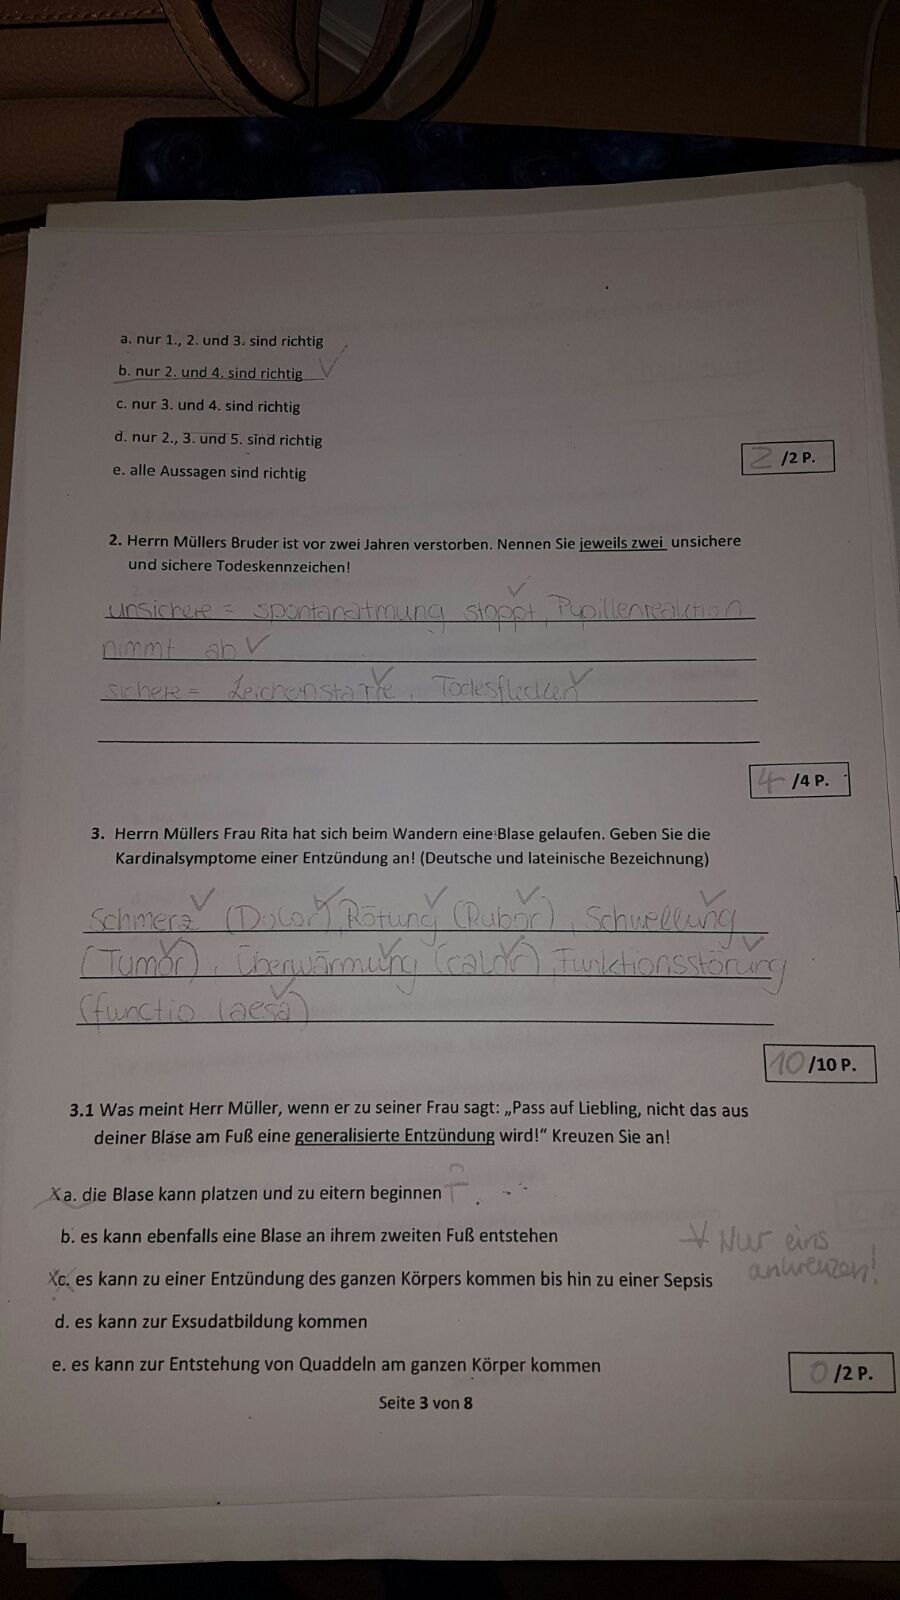 a. nur 1., 2. und 3. sind richtig
b. nur 2. und 4. sind richtig
c. nur 3. und 4. sind richtig
d. nur 2., 3. und 5. sind richtig
e. alle Aussagen sind richtig
2 /2 P.
2. Herrn Müllers Bruder ist vor zwei Jahren verstorben. Nennen Sie jeweils zwei unsichere
und sichere Todeskennzeichen!
unsichere = spontanatmung stoppt, Pupillenreaktion
nimmt ab
sichere = Leichenstarre, Todesflecken
4 /4 P.
3. Herrn Müllers Frau Rita hat sich beim Wandern eine Blase gelaufen. Geben Sie die
Kardinalsymptome einer Entzündung an! (Deutsche und lateinische Bezeichnung)
Schmerz (Dolor), Rötung (Rubor), Schwellung
(Tumor), Überwärmung (calor), Funktionsstörung
(functio laesa)
10 /10 P.
3.1 Was meint Herr Müller, wenn er zu seiner Frau sagt: „Pass auf Liebling, nicht das aus
deiner Blase am Fuß eine generalisierte Entzündung wird!“ Kreuzen Sie an!
x a. die Blase kann platzen und zu eitern beginnen F
b. es kann ebenfalls eine Blase an ihrem zweiten Fuß entstehen
x c. es kann zu einer Entzündung des ganzen Körpers kommen bis hin zu einer Sepsis
Nur eins
ankreuzen!
d. es kann zur Exsudatbildung kommen
e. es kann zur Entstehung von Quaddeln am ganzen Körper kommen
0 /2 P.
Seite 3 von 8